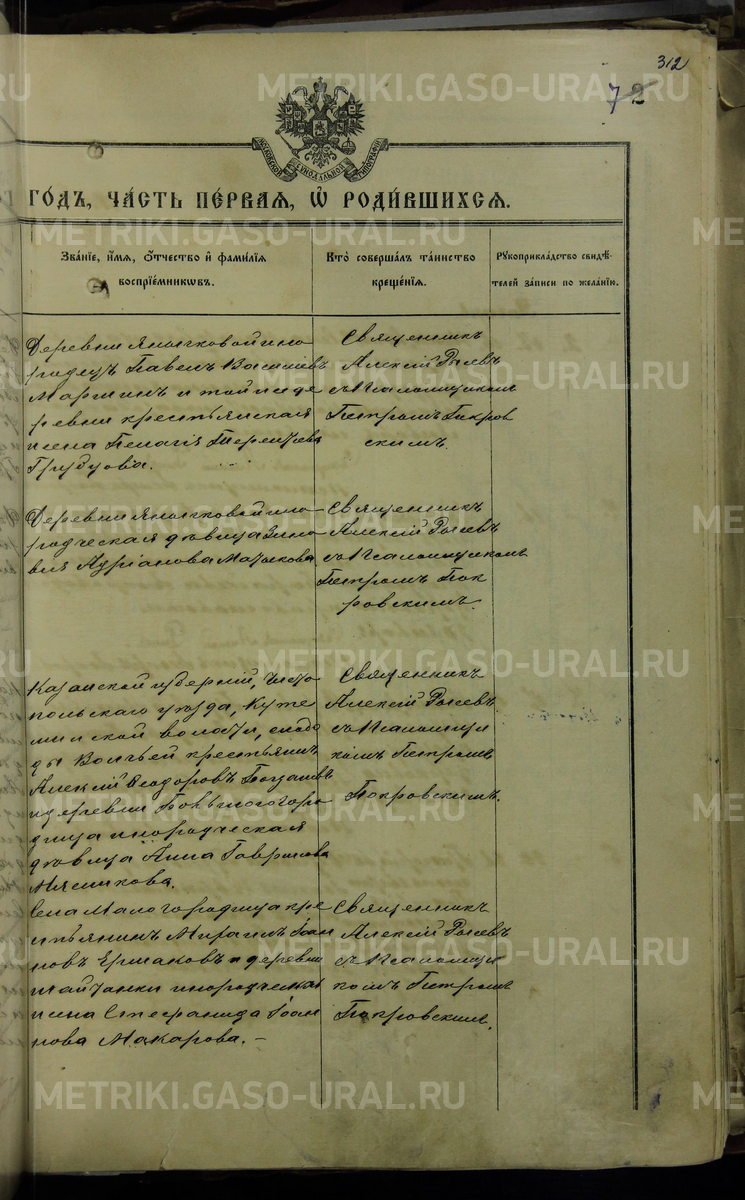 312
72
МОСКОВСКОЙ СѴНОДАЛЬНОЙ ТИПОГРАФІИ
ГО́ДЪ, ЧА́СТЬ ПЕ́РВАѦ, Ѡ҆ РОДИ́ВШИХСѦ.
Зва́нїе, и҆́мѧ, о҆́тчество и҆ фами́лїѧ
воспрїе́мникѡвъ.
Кто̀ соверша́лъ та́инство
креще́нїѧ.
Рꙋкоприкла́дство свидѣ́-
телей за́писи по жела́нїю.
Деревни Яныгковой ино
родецъ Павелъ Василіевъ
и той же де
ревни крестьянская
жена Пелагія Терентьева
Грибузова.
Священникъ
Алексій Рысевъ
съ Псаломщикомъ
Петромъ Покров
скимъ.
Деревни Яныгковой ино
родческая дѣвица Зино
вія Адріанова
Священникъ
Алексій Рысевъ
съ Псаломщикомъ
Петромъ Пок
ровскимъ.
Казанской губерніи, Чисто
польскаго уѣзда, Куте
минской волости, слобо
ды Волчьей крестьянинъ
Алексій Ѳеодоровъ
и деревни Большого Горо
дища инородческая
дѣвица Анна Гаврилова
Мясникова.
Священникъ
Алексій Рысевъ
съ Псаломщи
комъ Петромъ
Покровскимъ.
Села Малого Городища кре
стьянинъ Михаилъ Іоан
новъ Ермаковъ и деревни
Шайтанки инородческая
жена Стефанида Іоан
нова Макарова. –
Священникъ
Алексій Рысевъ
съ Псаломщи
комъ Петромъ
Покровскимъ.
METRIKI.GASO-URAL.RU